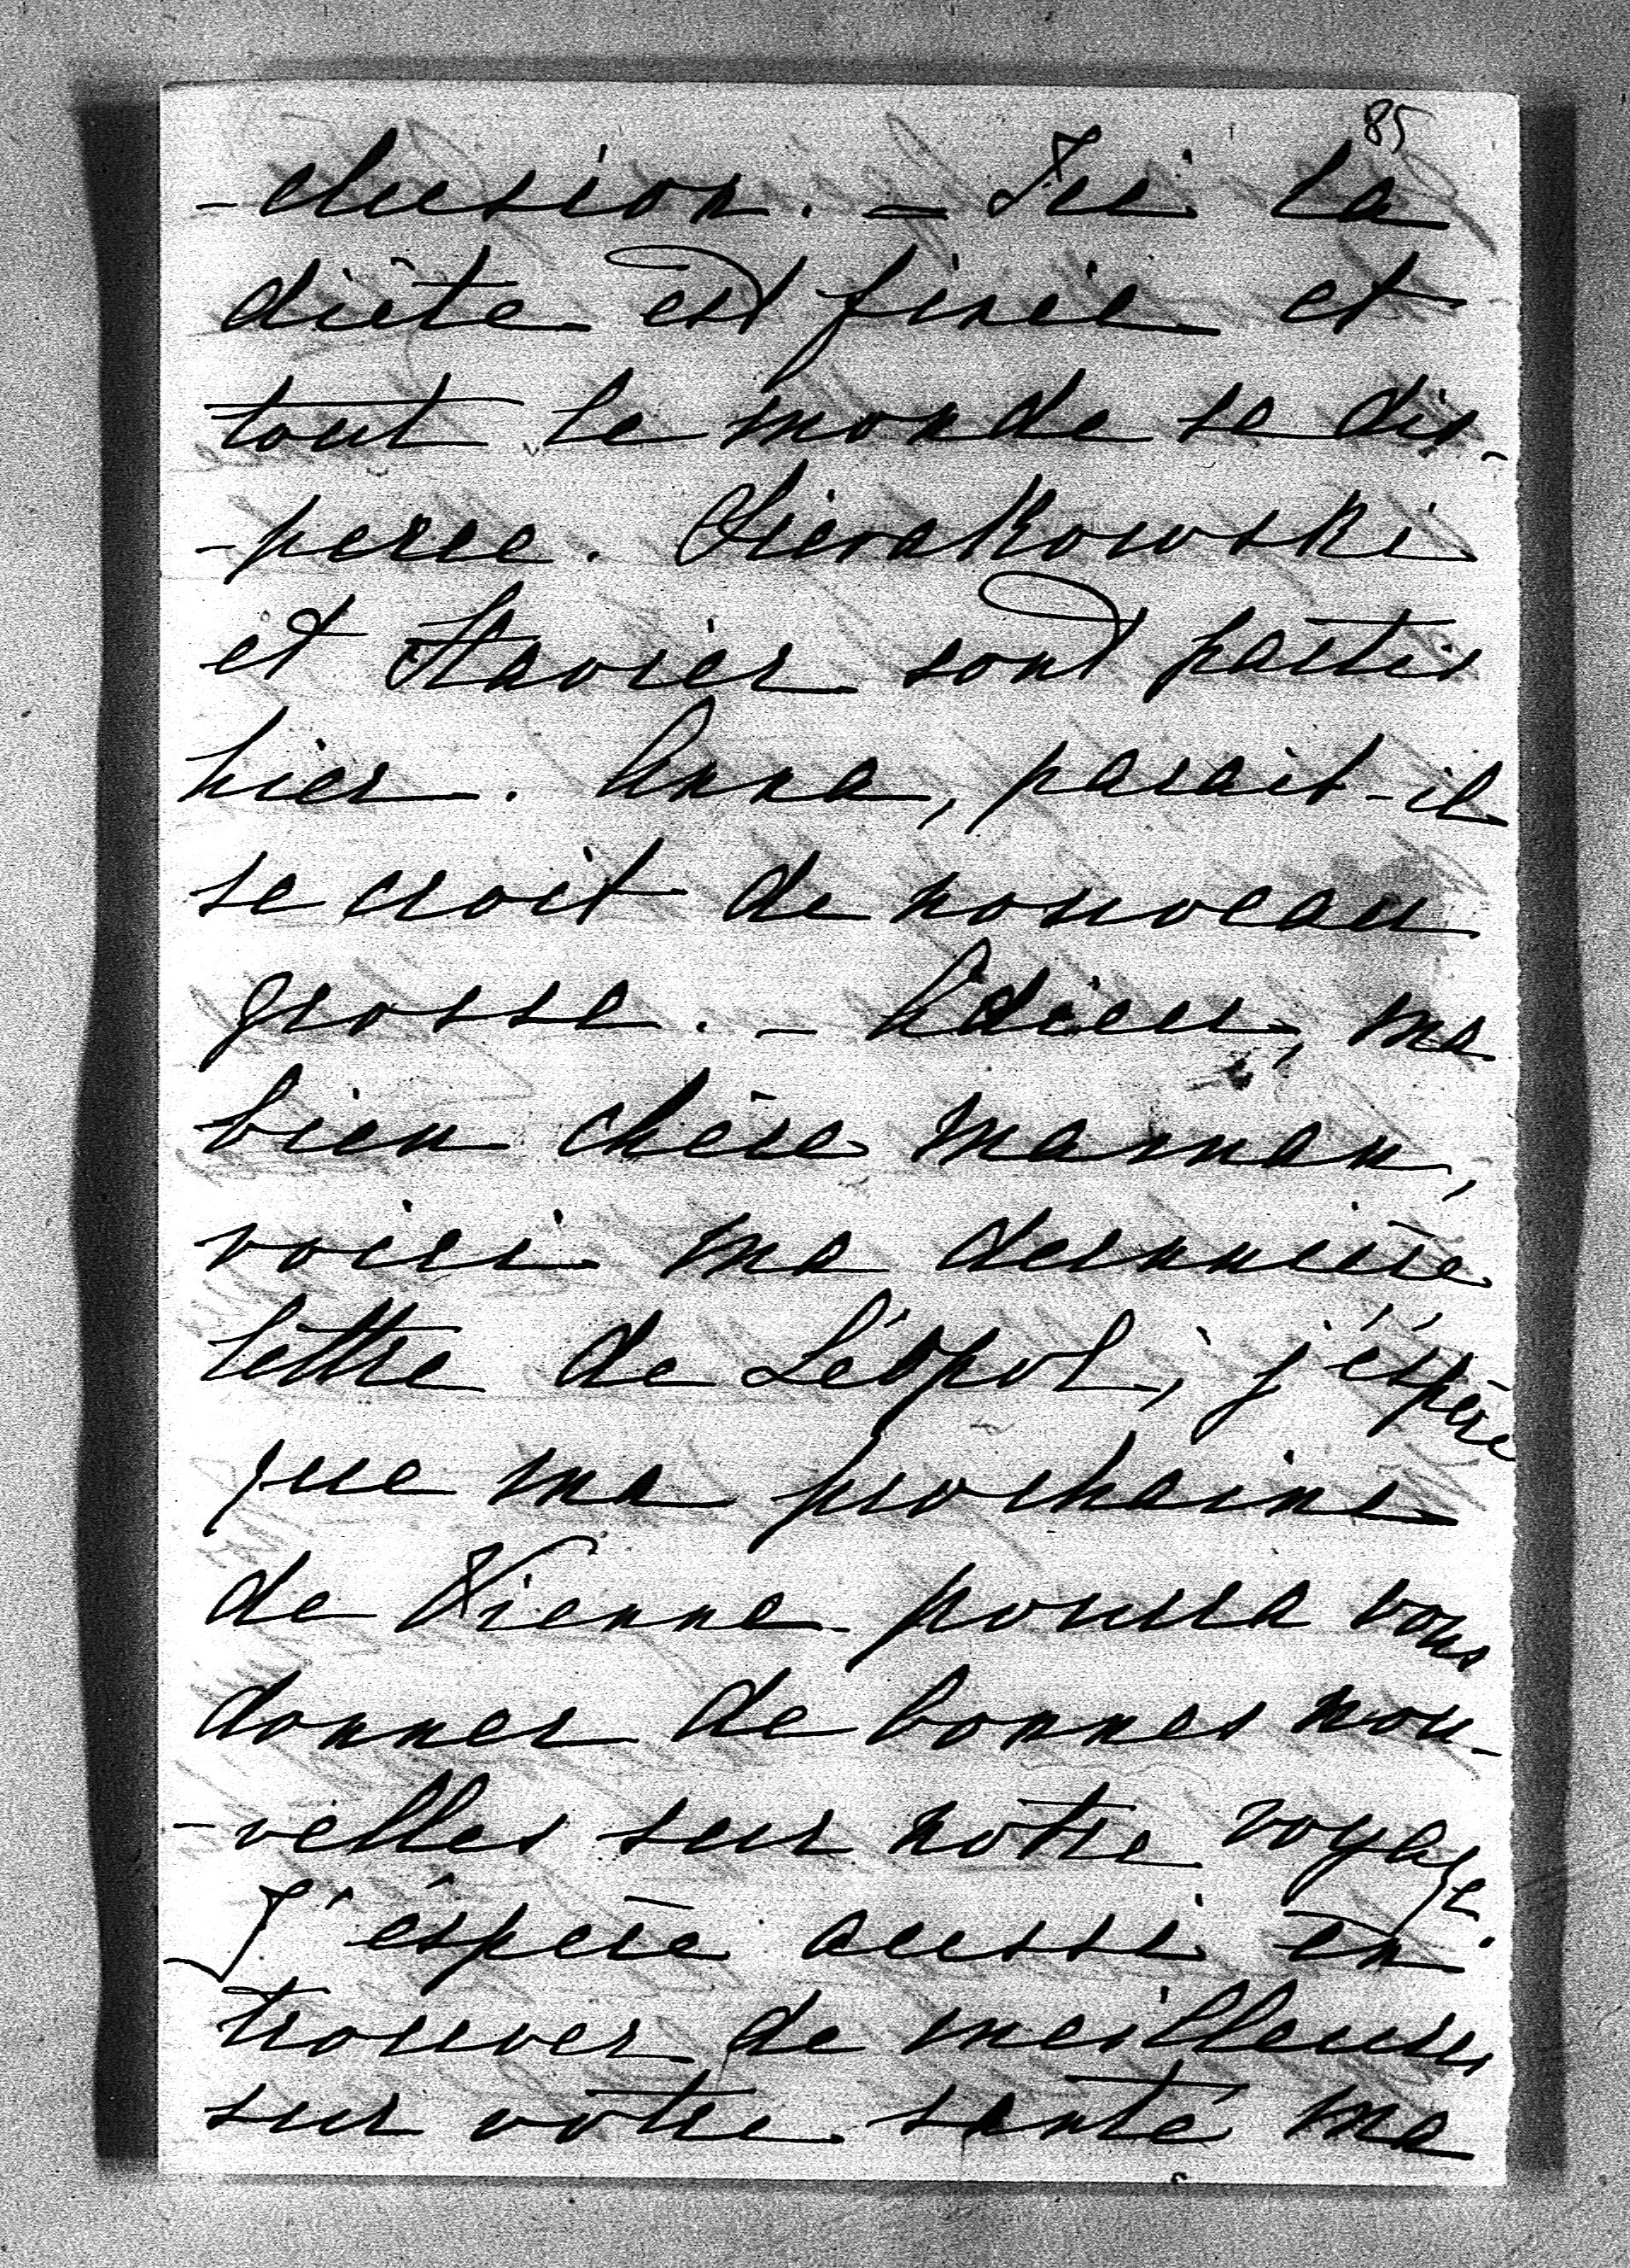 85
-clusion. - Ici la
diète est finie et
tout le monde se dis-
-perce. Sierakowski
et Xavier sont partis
hier. Anna, parait-il
se croit de nouveau
grosse. - Adieu, ma
bien chère maman,
voici ma dernnière
lettre de Léopol, j'éspère
que ma prochaine
de Vienne pourra vous
donner de bonnes nou-
-velles sur notre voyage.
J'éspère aussi en
trouver de meilleures
sur votre santé ma